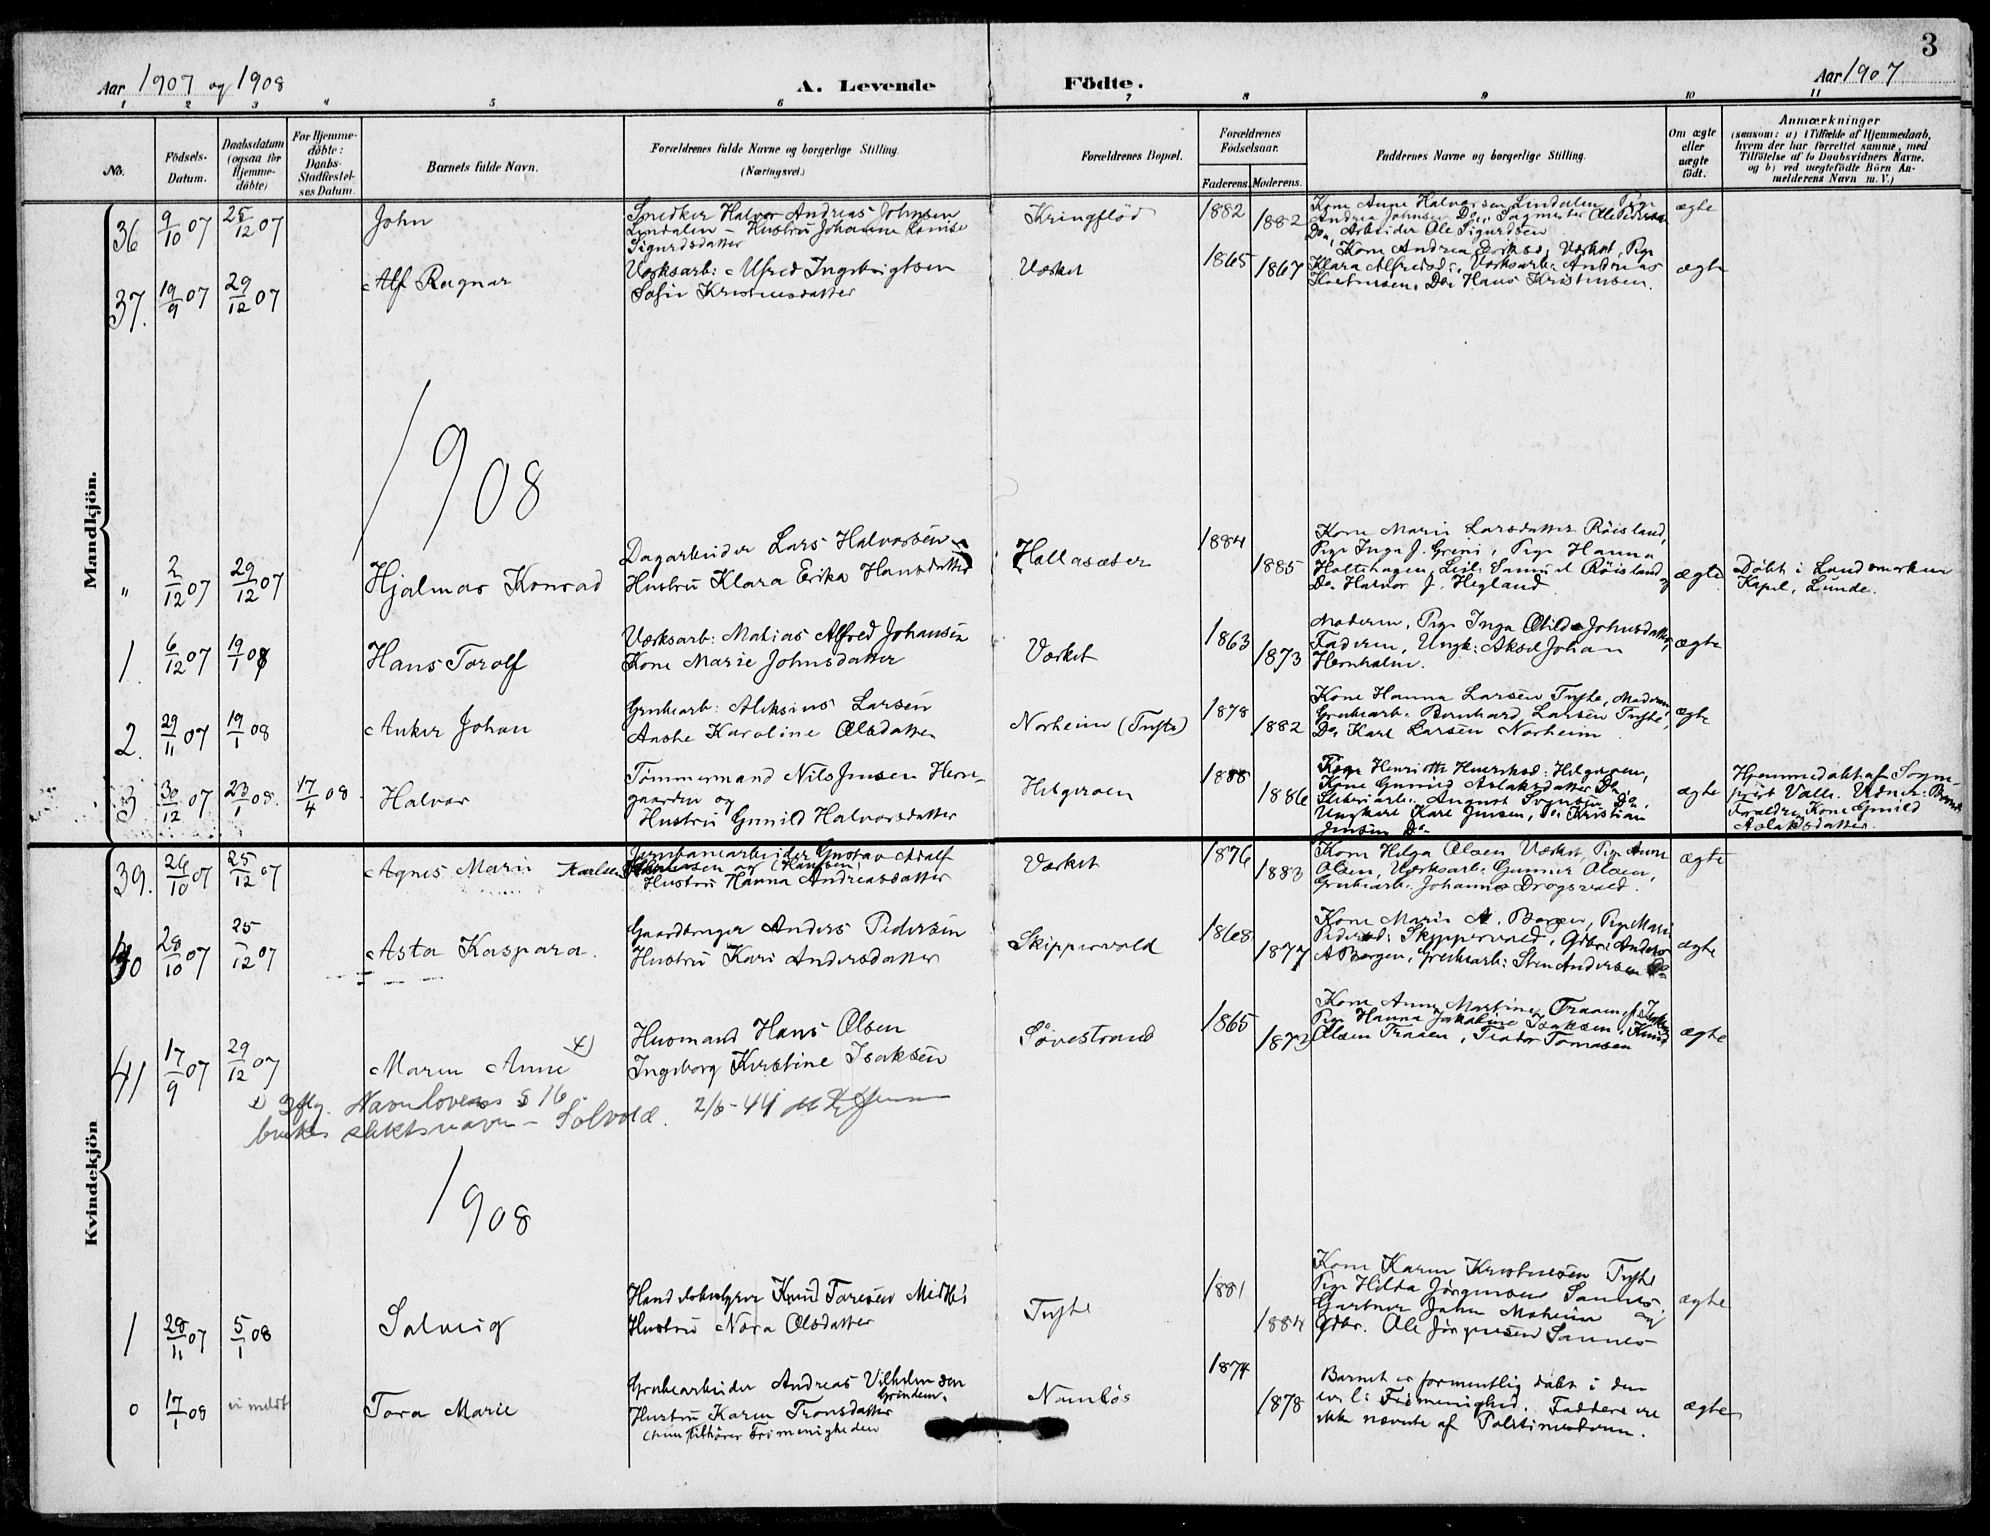 3
Aar 1907 og 1908
A. Levende Födte.
Aar 1907
1 2 3 4 5 6 7 8 9 10 11
No.
Födsels-Datum.
Daabsdatum (ogsaa for Hjemme-döbte)
For Hjemme-döbte: Daabs-Stadfæstel-ses Datum.
Barnets fulde Navn.
Forældrenes fulde Navne og borgerlige Stilling. (Næringsvei.)
Forældrenes Bopæl.
Forældrenes Födselsaar.
Faderens. Moderens.
Faddernes Navne og borgerlige Stilling.
Om ægte eller uægte födt.
Anmærkninger
(saasom: a) i Tilfælde af Hjemmedaab,
hvem der har forrettet samme, med
Tilföielse af to Daabsvidners Navne.
og b) ved uægtefödte Börn An-
melderens Navn m. V.)
Mandkjön.
36 9/10 07 26/12 07 John
Snedker Halvor Andreas Johnsen
Lindalen – Hustru Johanne Lovise
Sigurdsdatter
Kringflöd 1882 1882
Kone Anne Halvorsen Lindalen, Pige
Andrea Johnsen Do, Sagmester Ole Pedersen
Do, Arbeider Ole Sigurdsen
ægte
37. 19/9 07 29/12 07 Alf Ragnar
Værksarb: Alfred Ingebrigtsen
Sofie Kristensdatter
Værket 1865 1867
Kone Andrea Eriksd, Værket, Pige
Klara Alfredsd:, Værksarb: Andreas
Kristensen, Do: Hans Kristensen.
ægte
1908
" 2/12 07 29/12 07 Hjalmar Konrad
Dagarbeider Lars Halvorsen
Hustru Klara Erika Hansdatter
Hallasæter 1884 1885
Kone Marie Larsdatter Röisland,
Pige Inga J. Greni, Pige Hanna
Holtehagen, Leil: Samuel Röisland og
Do Halvor J. Hegland
ægte
Döbt i Landsmarken
Kapel, Lunde.
1. 6/12 07 19/1 08 Hans Torolf
Værksarb: Matias Alfred Johansen
Kone Marie Johnsdatter
Værket 1863 1873
Moderen, Pige Inga Otilde Johnsdatter,
Faderen, Ungk: Aksel Johan
Hernholm.
ægte
2. 29/11 07 19/1 08 Anker Johan
Grubearb: Aleksius Larsen
Anshe Karoline Olsdatter
Norheim (Tufte) 1878 1882
Kone Hanna Larsen Tufte, Moderen,
Grubearb: Bernhard Larsen Tufte,
Do: Karl Larsen Norheim
ægte
3 30/12 07 23/1 08. 17/4 08 Halvor
Tömmermand Nils Jensen Herre-
gaarden og
Hustru Gunild Halvorsdatter
Helgeroen 1888 1886
Kone Gunild Aslaksdatter Do,
August Svendsen Do.
Ungkarl Karl Jensen, Do: Kristian
Jensen Do
ægte
Hjemmedöbt af Sogne
præst Valle. Vidner: Barnets
Forældre, Kone Gunild
Aslaksdatter.
Kvindekjön
39. 26/10 07 25/12 07 Agnes Marie Karlsen
Jernbanearbeider Gustav Adolf
og (Hansen)
Hustru Hanna Andreasdatter
Værket 1876 1883
Kone Helga Olsen Værket, Pige Anne
Olsen, Værksarb: Gunner Olsen,
Grubearb: Johannes Drogsvold.
ægte
40 28/10 07 25/12 07 Asta Kaspara.
Gaardbruger Anders Pedersen
Hustru Kari Andersdatter
Skippervold 1868 1877
Kone Marie A. Borgen, Pige Mari
Pedersd: Skippervold, Gdbr: Anders
A Borgen, Grubearb: Sten Andersen Do
ægte
41 17/9 07 29/12 07 Maren Anne x)
Husmand Hans Olsen
Ingeborg Kirstine Isaksen
Sövestrand 1865 1873
Kone Anne Martine Traaen,
Pige Hanna Jakobine Isaksen, Knud
Olsen Traaen, Teodor Tomasen
ægte
x) Iflg. Navnlovens § 16
brukes slektsnavn – Solvold. 2/6-44
1908
1 28/11 07 5/1 08 Solveig
Handelsbetjent Knud Toresen Midtbö
Hustru Nora Olsdatter
Tufte 1881 1884
Kone Karen Kristensen Tufte
Pige Hilda Jörgensen Sannes.
Gartner John Moheim og
Gdbr. Ole Jörgensen Sannes
ægte
0 17/1 08 ei meldt Tora Marie
Grubearbeider Andreas Vilhelmsen
Grinden.
Hustru Karen Tronsdatter
(hun tilhörer Frimenigheden
Namlös 1874 1878
Barnet er formentlig döbt i den
ev. l: Frimenighed. Faddere ere
ikke nævnte af
ægte